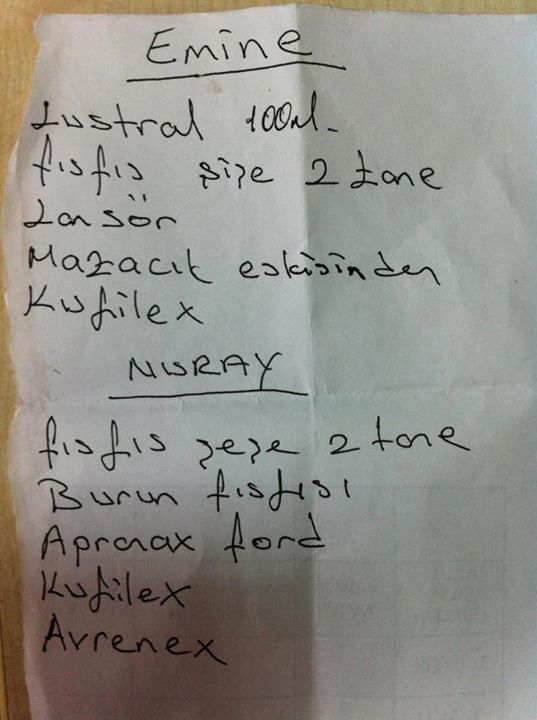 Emine
Lustral 100ml.
fısfış şişe 2 tane
Lansör
Mazacık eskisinden
Kufilex
NURAY
fısfıs şeşe 2 tane
Burun fısfısı
Apranax ford
Kufilex
Avrenex